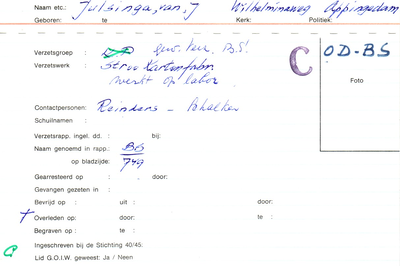 Naam etc.: Julsinga, van, J Wilhelminaweg Appingedam
Geboren: te Kerk: Politiek:
Verzetsgroep : gew. Ver. B.S! C OD-BS
Verzetswerk : Stroo Kartonfabr. Foto
werkt op labor.
Contactpersonen: Reinders - Schalker
Schuilnaam :
Verzetsrapp. ingel. dd. : bij:
Naam genoemd in rapp.: BS
op bladzijde: 749
Gearresteerd op : door:
Gevangen gezeten in :
Bevrijd op : uit door:
† Overleden op: door: te :
Begraven op : te :
Ingeschreven bij de Stichting 40/45:
Lid G.O.I.W. geweest: Ja / Neen